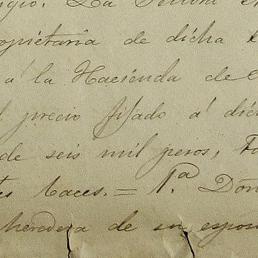 La Señora
opietaria de dicha
á la Hacienda de
precio fijado á dic
de seis mil pesos,
= 1.ª Don
heredera de su espos